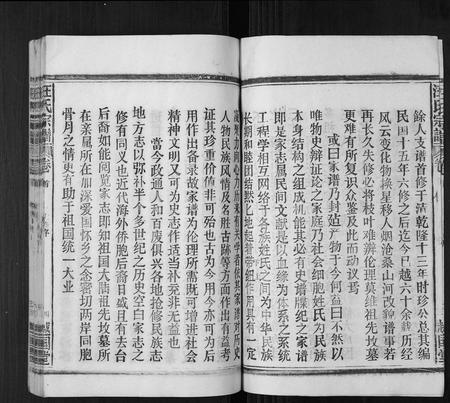 汪氏宗譜
餘人支谱首修于清乾隆十三年时珍公总其编
民国十五年六修之后迄今已越六十余载历经
风云变化物换星移人烟沧桑山河改貌谱事若
再长久失修必将枝叶难辨伦理莫维祖先坟墓
更难有所复识众鉴及此而动议焉
或曰家谱乃封建产物于今何益曰不然以
唯物史辩证论之家庭乃社会细胞姓氏为民族
本身结构之组成机能其必有史谱牒纪之家谱
即是家志属民间文献是以血缘为体系之系统
工程学相互网络于各族姓氏之间为中华民族
长期和睦团结
人物民族风情及名胜古跡等方面作出有益考
证具珍重价值非可殆也古为今用亦可为后
用作出备录故家谱为伦理所需既可增进社会
精神文明又可为史志作适当补充非无益也
当今政通人和百废俱兴各地抢修民族志
地方志以弥补半个多世纪之历史空白家志之
修有同义也近代海外侨胞后裔日盛且有去台
后裔如能阅览家志即知祖国大陆祖先坟墓所
在亲属所在加深爱国怀乡之念密切两岸同胞
骨月之情更有助于祖国统一大业
汪氏宗譜